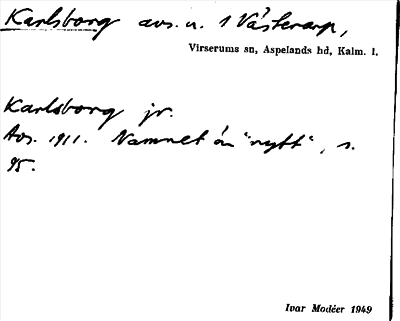 Karlsborg avs. u. 1 Västerarp,
Virserums sn, Aspelands hd, Kalm. l.
Karlsborg jr.
Avs. 1911. Namnet är "nytt", s.
95.
Ivar Modéer 1949